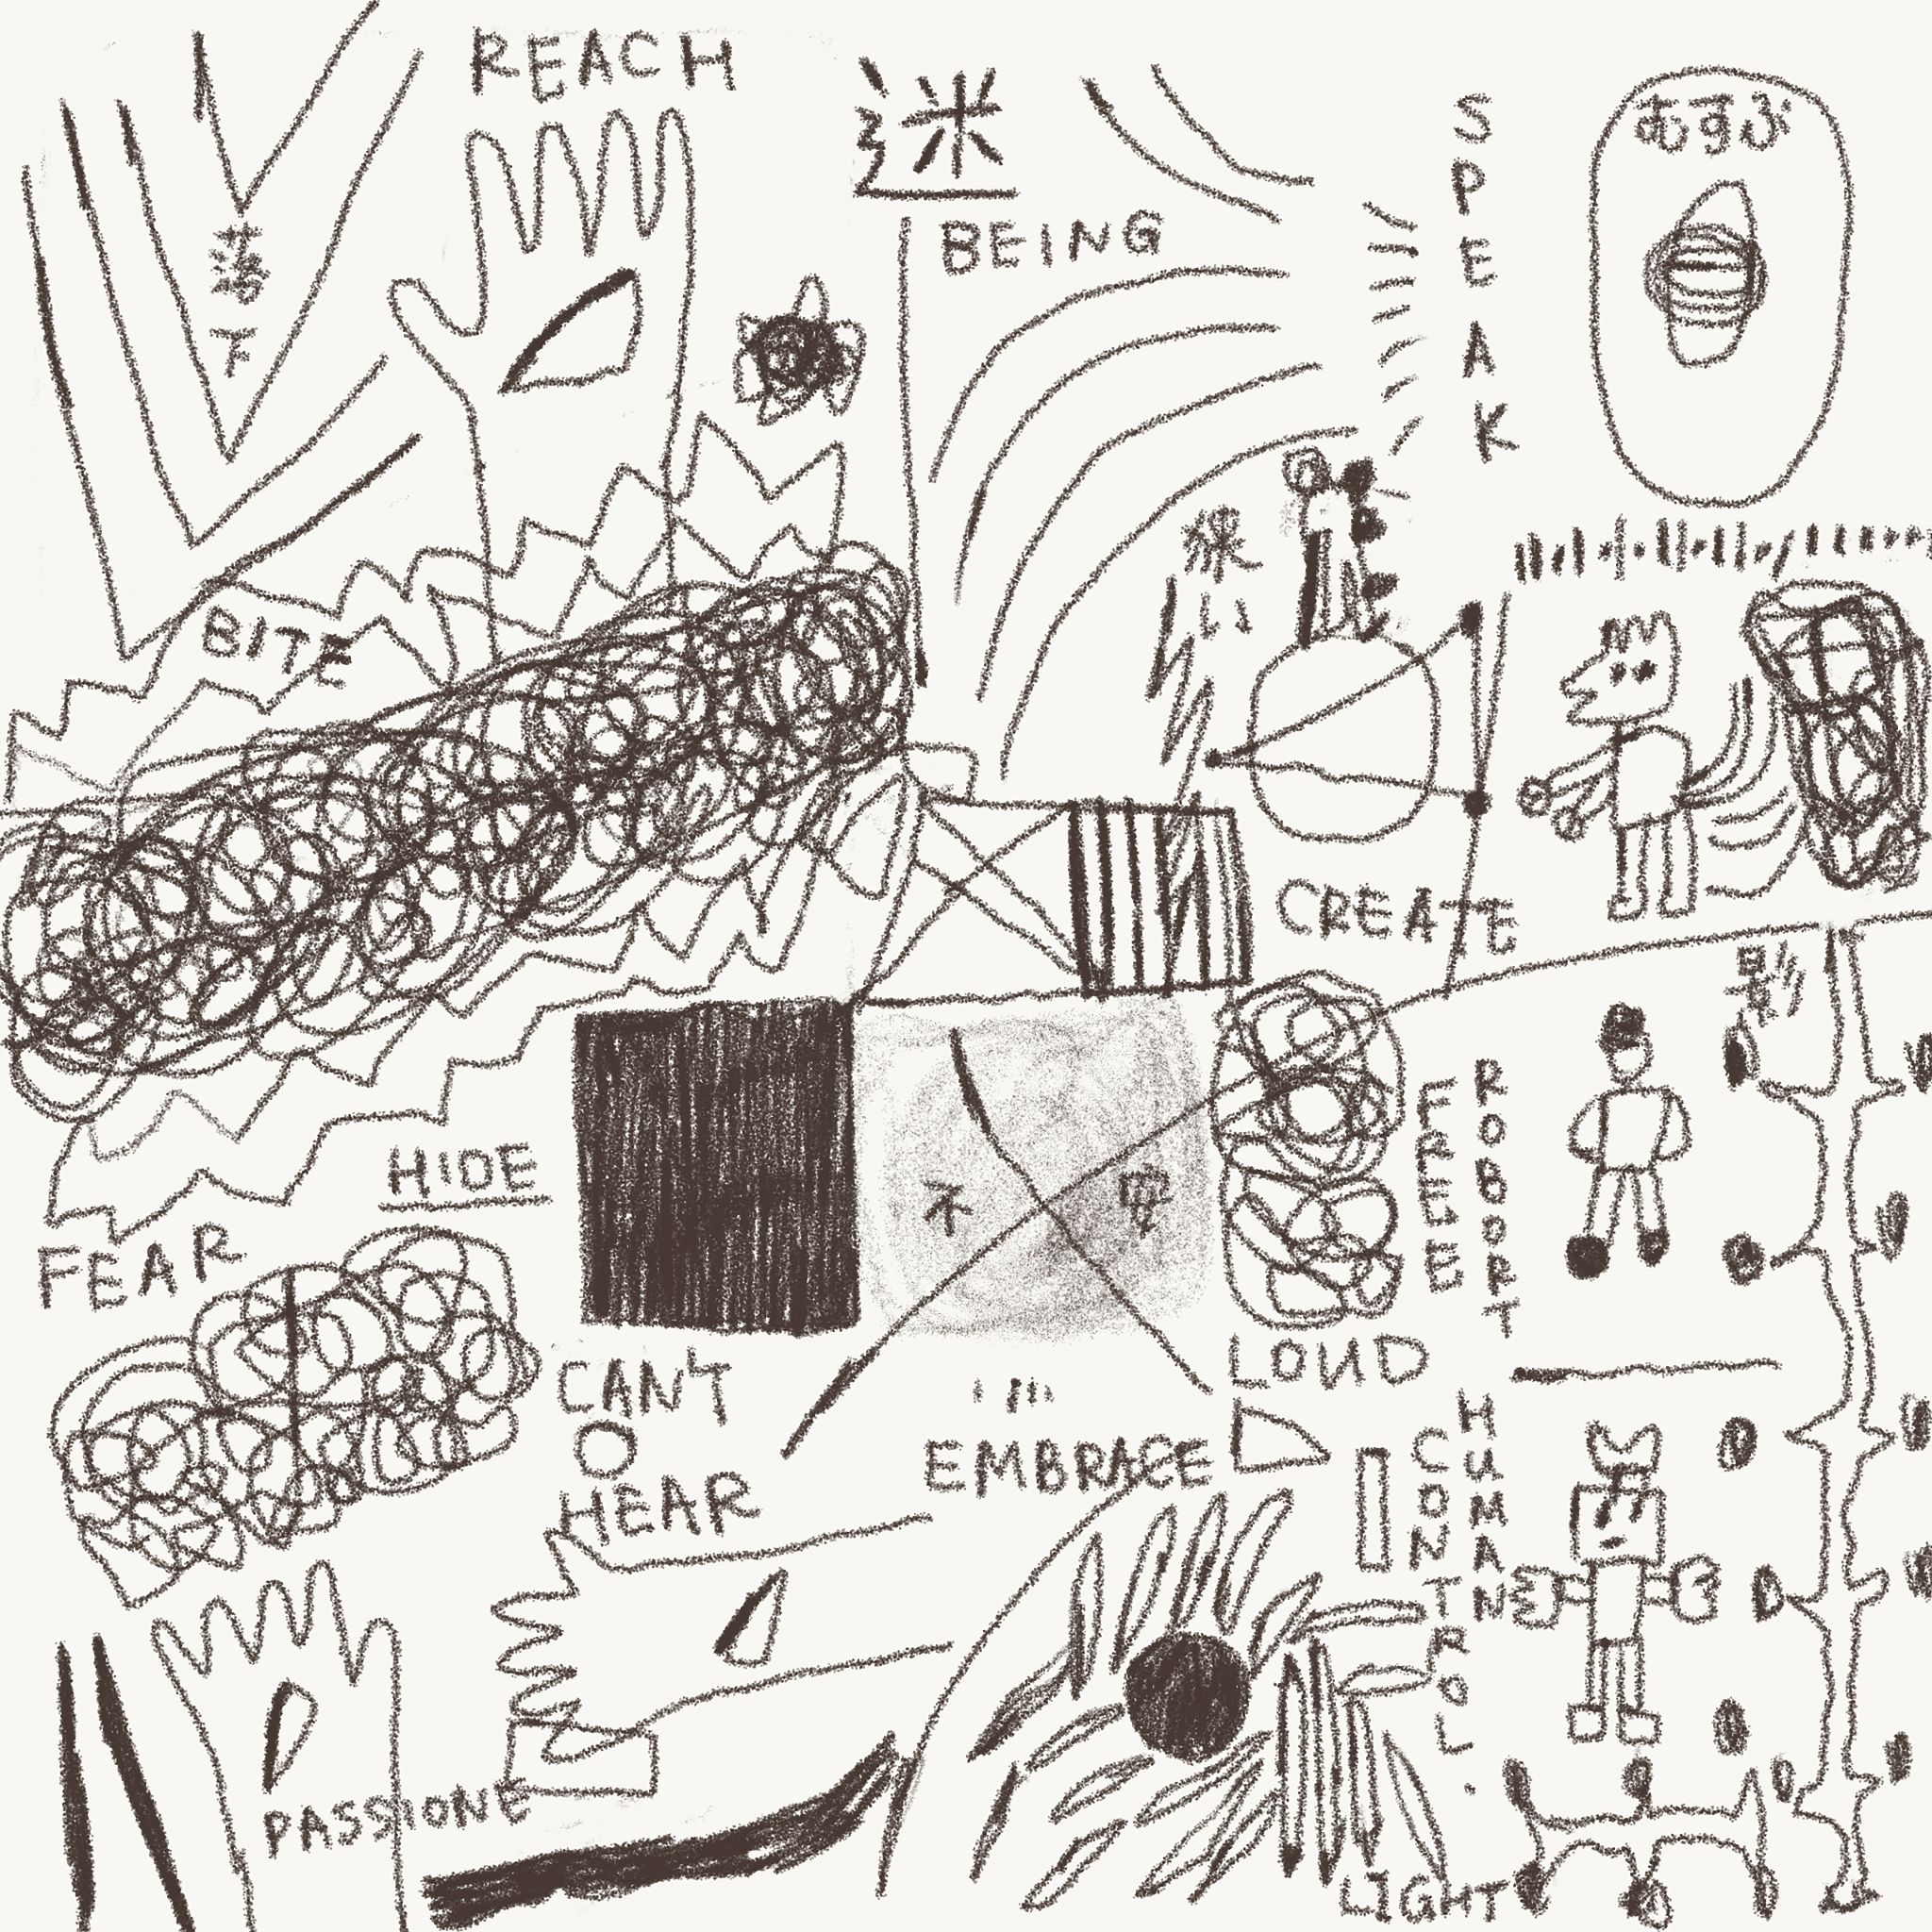 REACH
迷
BEING
SPEAK
むすぶ
落下
BITE
CREATE
影
HIDE
不
FEAR
ROBORT
LOUD
CAN'T
HEAR
EMBRACE
HUMAN
CONTROL.
PASSIONE
LIGHT